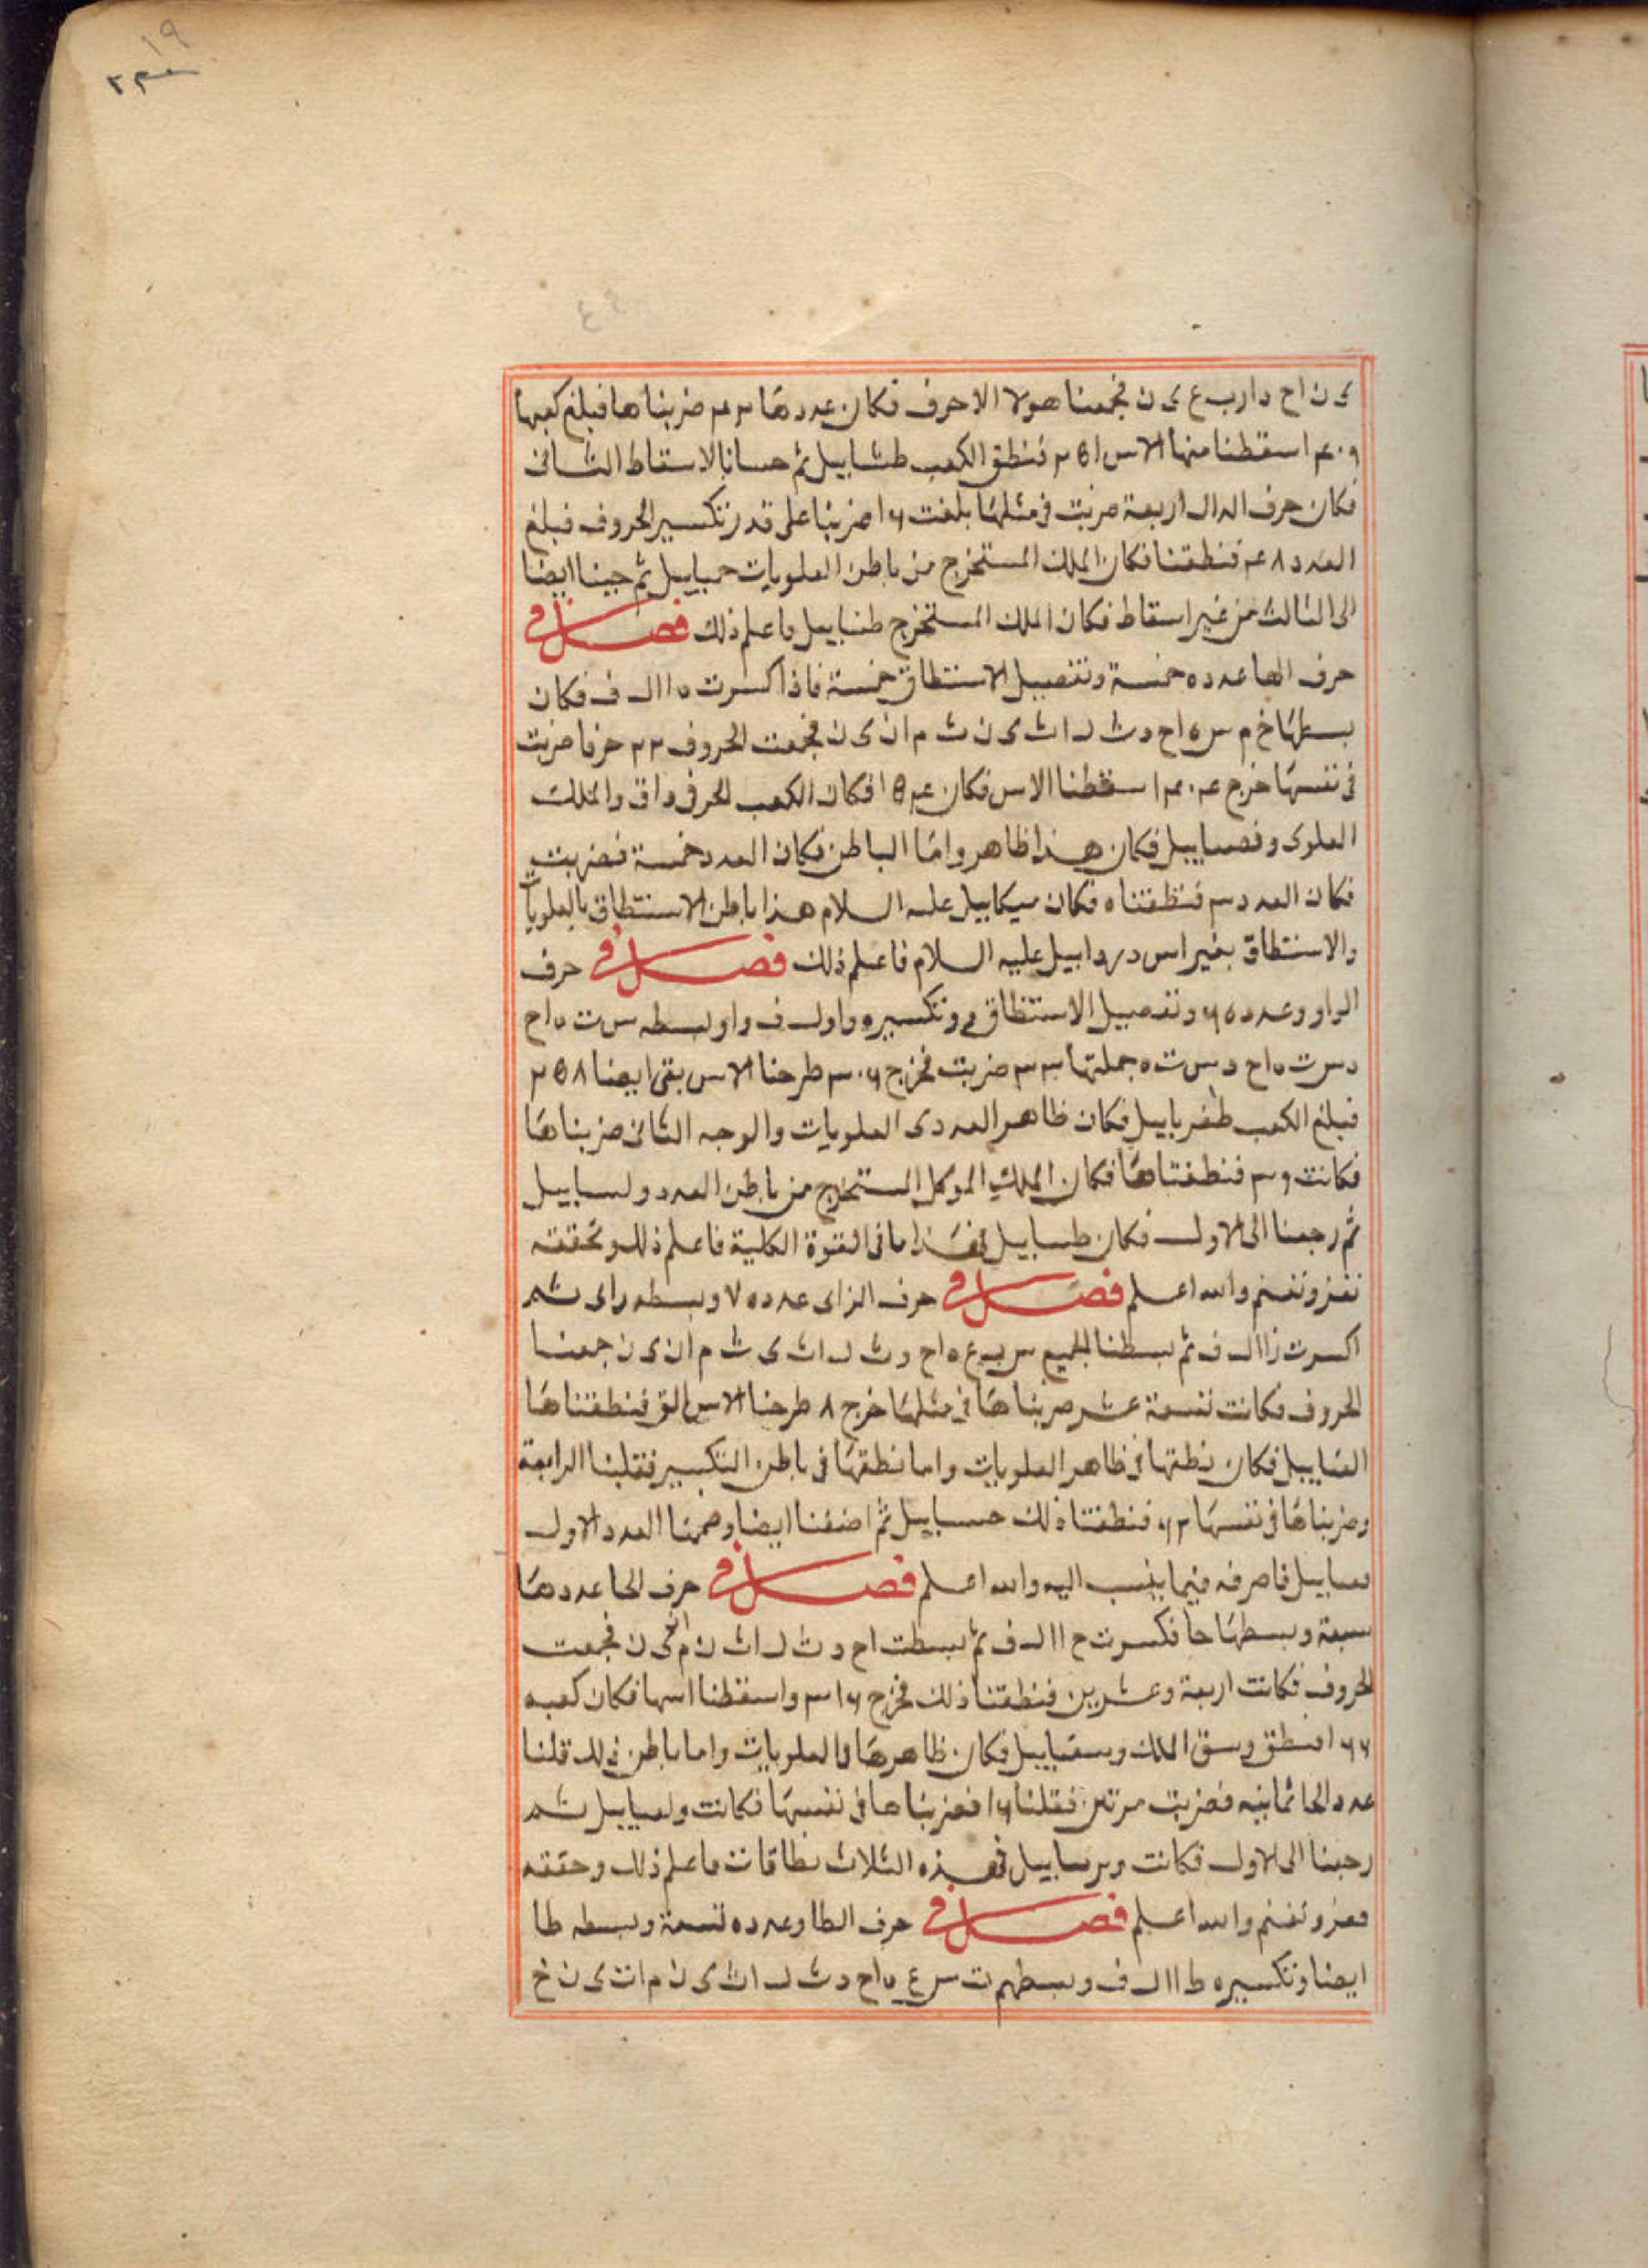 ١٩
ى ن اح د ا ر ب ع ى ن فجمعنا هولا الاحرف فكان عددها ٢٣ ضربناها فبلغ كعبها
اسقطنا منها الاس فنطق الكعب طشاييل ثم حسانا بالاسقاط الثانى
فكان حرف الدال اربعة ضربت فى مثلها بلغت ١٦ ضربنا على قدر تكسير الحروف فبلغ
العدد ٤٨ فنطقنا فكان الملك المستخرج من باطن العلويات حمياييل ثم جينا ايضا
الى الثالث من غير اسقاط فكان الملك المستخرج طنياييل فاعلم ذلك فصل فى
حرف الها عدده خمسة وتفصيل الاستنطاق خمسة فاذا كسرت ه ا ا ل ف فكان
بسطها خ م س ه اح د ث ل ا ث ى ن ث م ا ن ى ن فجمعت الحروف ٢٢ حرفا ضربت
فى نفسها خرج اسقطنا الاس فكان فكان الكعب لحرف داق والملك
العلوى وفصاييل فكان هذا ظاهر واما الباطن فكان العدد خمسة فضربت
فكان العدد فنطقناه فكان ميكاييل عليه السلام هذا باطن الاستنطاق بالعلويات
والاستنطاق بغير اس دردابيل عليه السلام فاعلم ذلك فصل فى حرف
الواو وعدده ٦ وتفصيل الاستنطاق وتكسيره و ا و ل ف و ا و بسطه س ت ه اح
د س ت ه اح د س ت ه جملتها ضربت فخرج طرحنا الاس بقى ايضا ٢٥٨
فبلغ الكعب طفرياييل فكان ظاهر العدد ى العلويات والوجه الثانى ضربناها
فكانت فنطقناها فكان الملك الموكل المستخرج من باطن العدد ولساييل
ثم رجعنا الى الاول فكان طساييل فهذا ما فى القوة الكلية فاعلم ذلك وتحققه
تفز وتغنم والله اعلم فصل فى حرف الزاى عدده ٧ وبسطه زاى ثم
اكسرت ز ا ا ل ف ثم بسطنا الجميع س ب ع ه اح د ث ل ا ث ى ث م ا ن ى ن جمعنا
الحروف فكانت تسعة عشر ضربناها فى مثلها خرج ٨ طرحنا الاس الق فنطقناها
القياييل فكان نطقها فى ظاهر العلويات واما نطقها فى باطن التكسير فقلبنا الرابعة
وضربناها فى نفسها فنطقنا ذلك حساييل ثم اضفنا ايضا وضمنا العدد الاول
فاصرفه فيما ينسب اليه والله اعلم فصل فى حرف الحا عددها
سبعة وبسطها حا فكسرت ح ا ا ل ف ثم بسطت اح د ث ل ا ث ن م ا ن ى ن فجمعت
الحروف فكانت اربعة وعشرين فنطقنا ذلك فخرج واسقطنا اسها فكان كعبه
فنطق وسق الملك وسقياييل فكان ظاهرها فالعلويات واما باطن ذلك قلنا
عدد الحا ثمانيه فضربت مرتين فقلنا ١٦ فضربناها فى نفسها فكانت ولعياييل ثم
رجعنا الى الاول فكانت فهذه الثلاث نطاقات فاعلم ذلك وحققه
تفز وتغنم والله اعلم فصل فى حرف الطا وعدده تسعة وبسطه طا
ايضا وتكسيره ط ا ا ل ف وبسطهم ت س ع ه اح د ث ل ا ث ى ن م ا ن ى ن خ